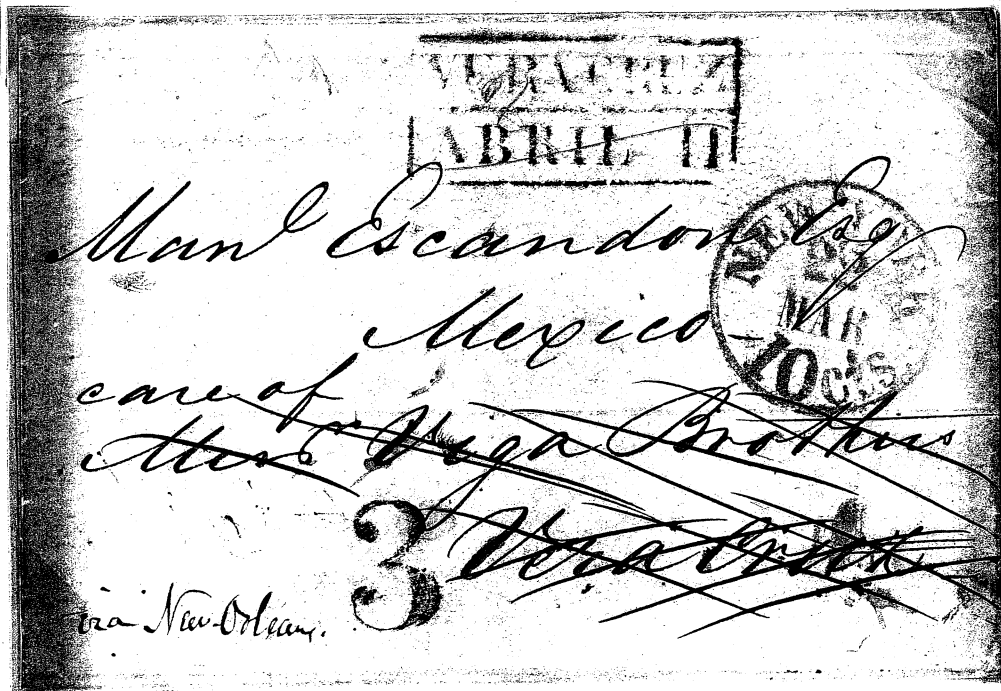 VERACRUZ
ABRIL 11
Manl Escandon Esqr
NEW YORK
MAR
10 cts
Mexico
care of
Messrs Viga Brothers
3
Vera Cruz
via New-Orleans.